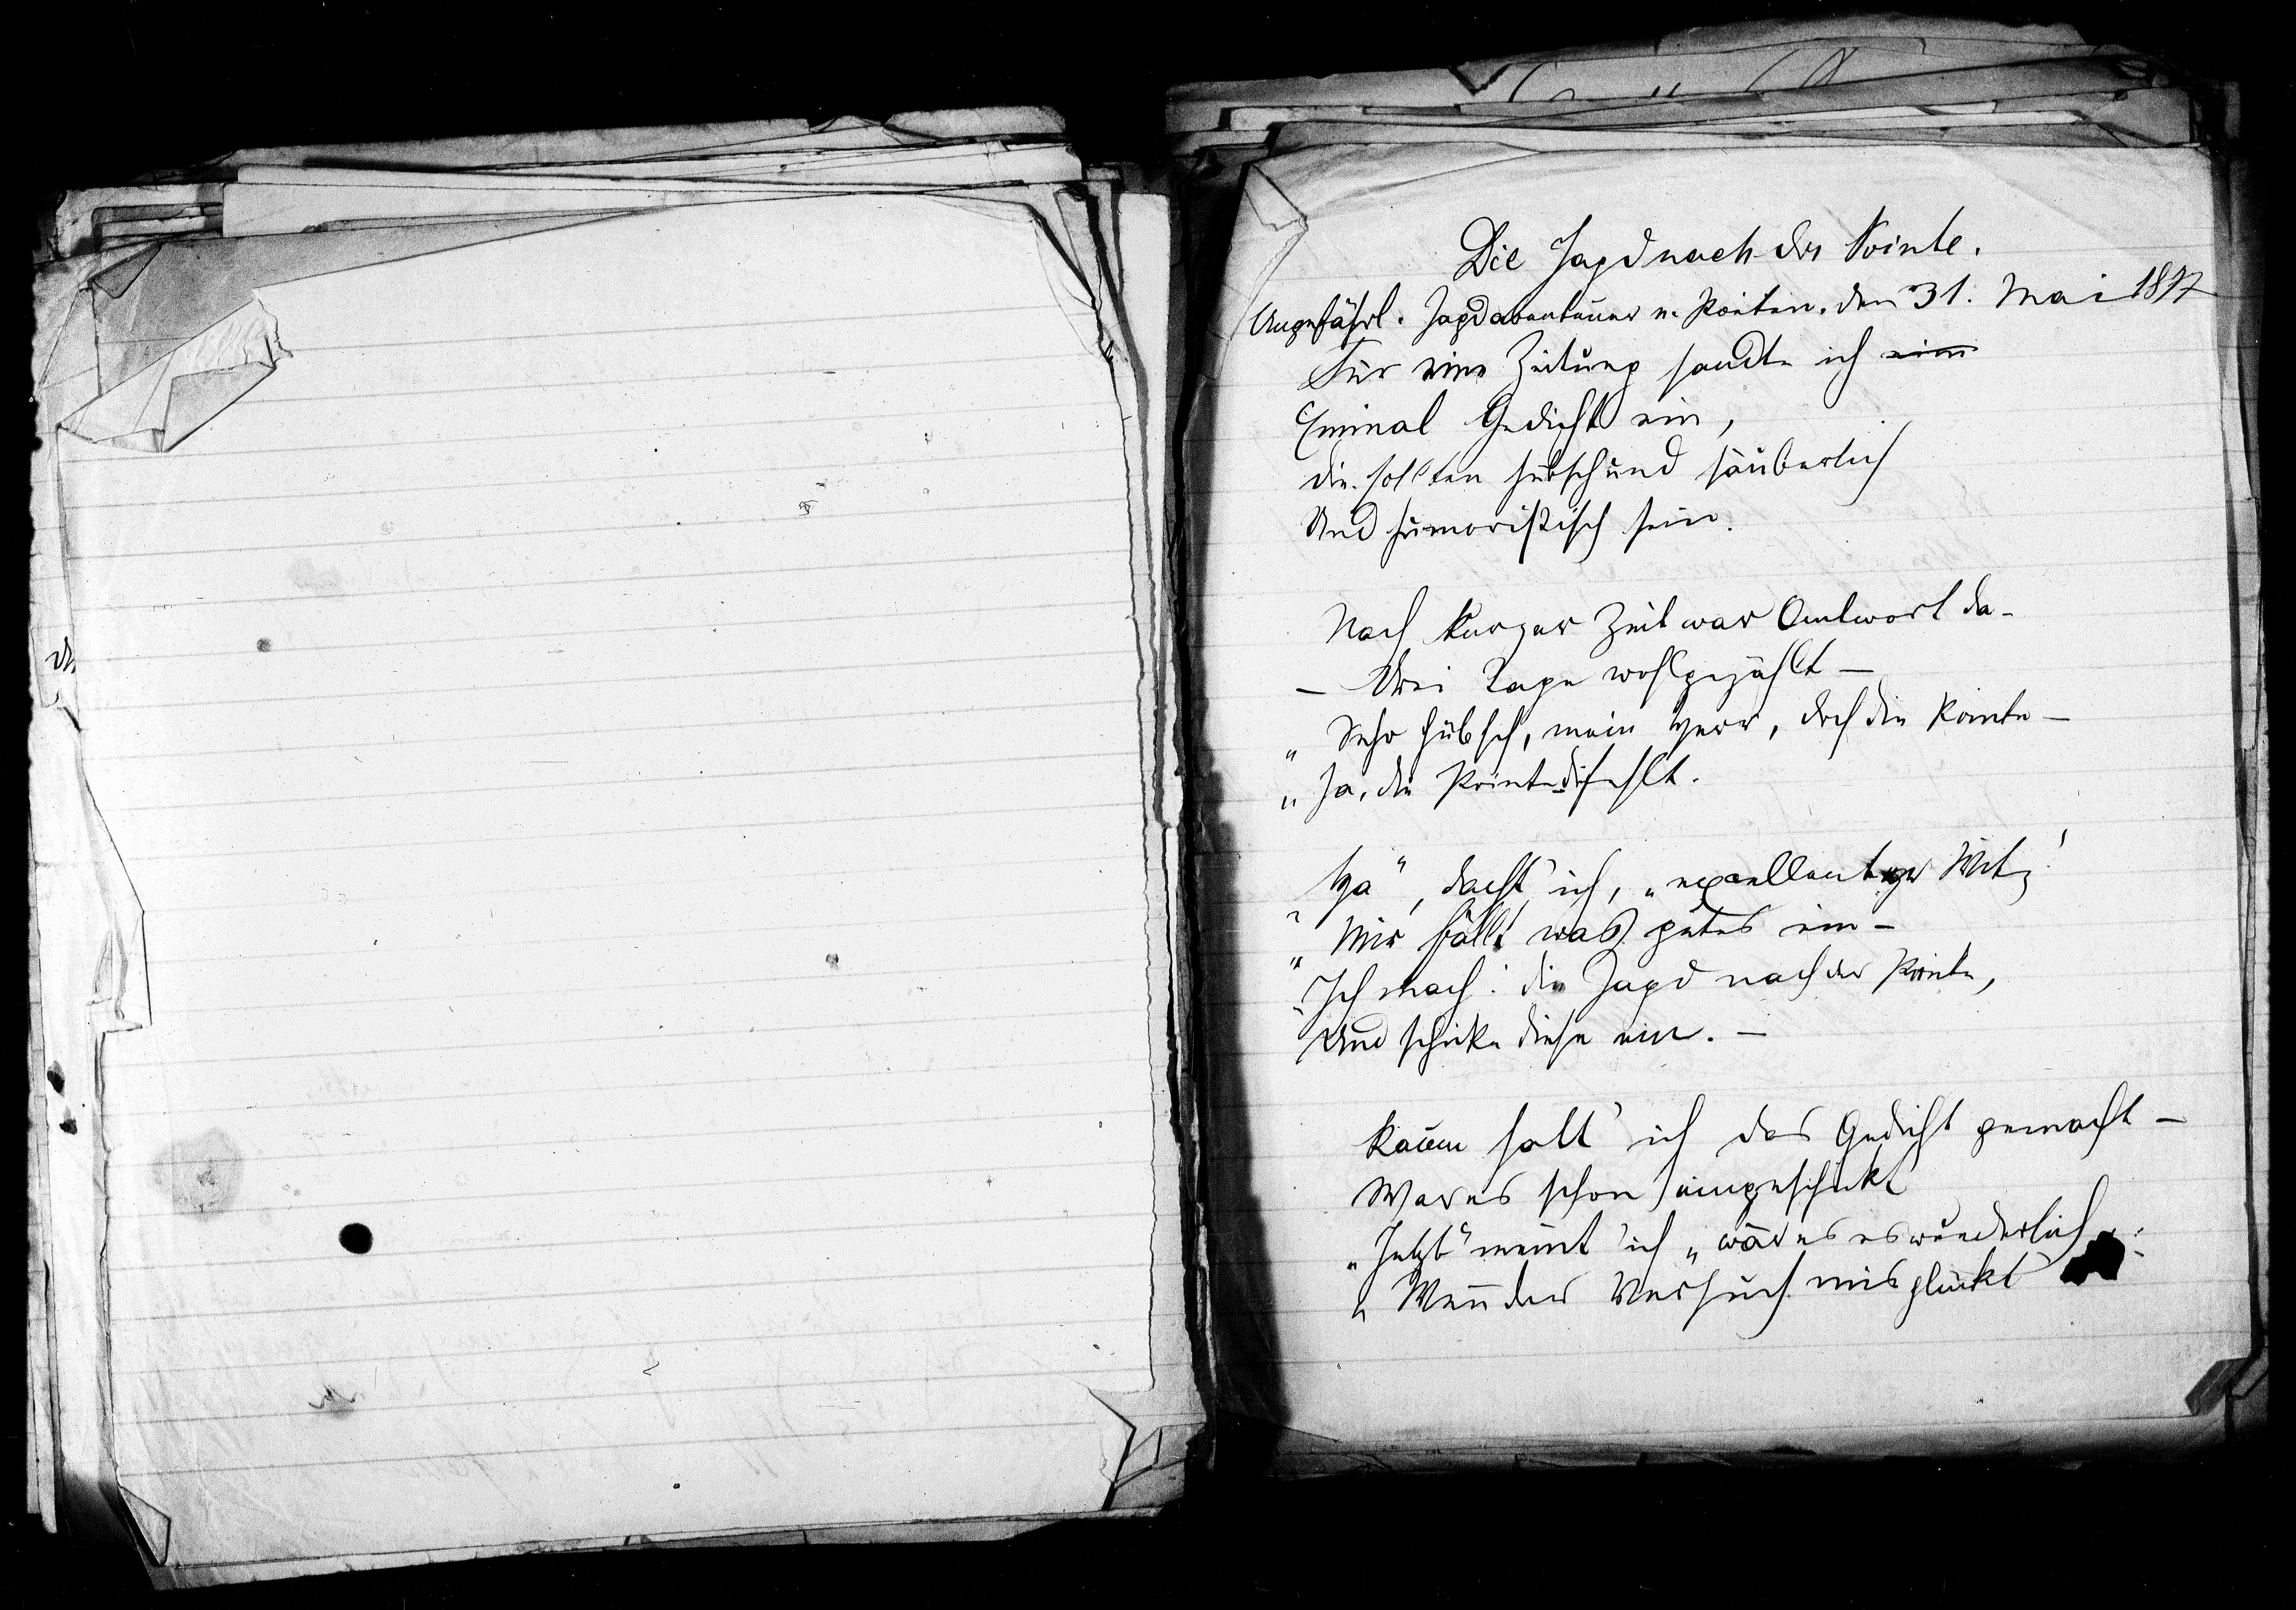 Die Jagd nach der Pointe.
Ungefährl. Jagdabenteuer v. Poiten. den 31. Mai 1897
Für eine Zeitung sandte ich
Einmal Gedicht ein,
die sollten hübsch und säuberlich
Und humoristisch sein.
Nach kurzer Zeit war Antwort da-
– Drei Tage wohlgezählt –
„ Sehr hübsch, mein Herr, doch die Pointe –
„ Ja, die Pointe die fehlt.
Ha", dacht' ich, „excellenter Witz!
„ Mir fällt was gutes ein –
„ Ich mach: die Jagd nach der Pointe,
Und schicke diese ein. –
Kaum hatt' ich das Gedicht gemacht –
War es schon eingeschickt
„ Jetzt" meint' ich „ wär es wunderlich
„ Wenn der Versuch misglückt